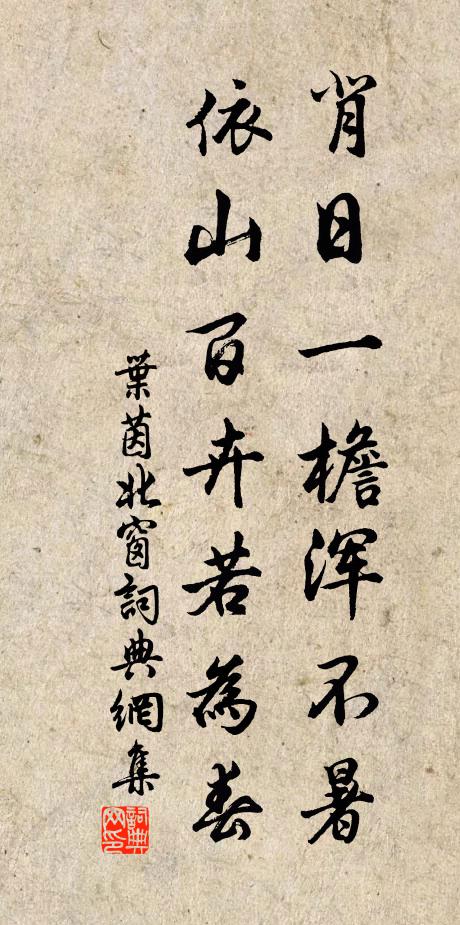 背日一檐浑不暑
依山百卉若為春
葉茵北窗詞典網集
詞典
网印